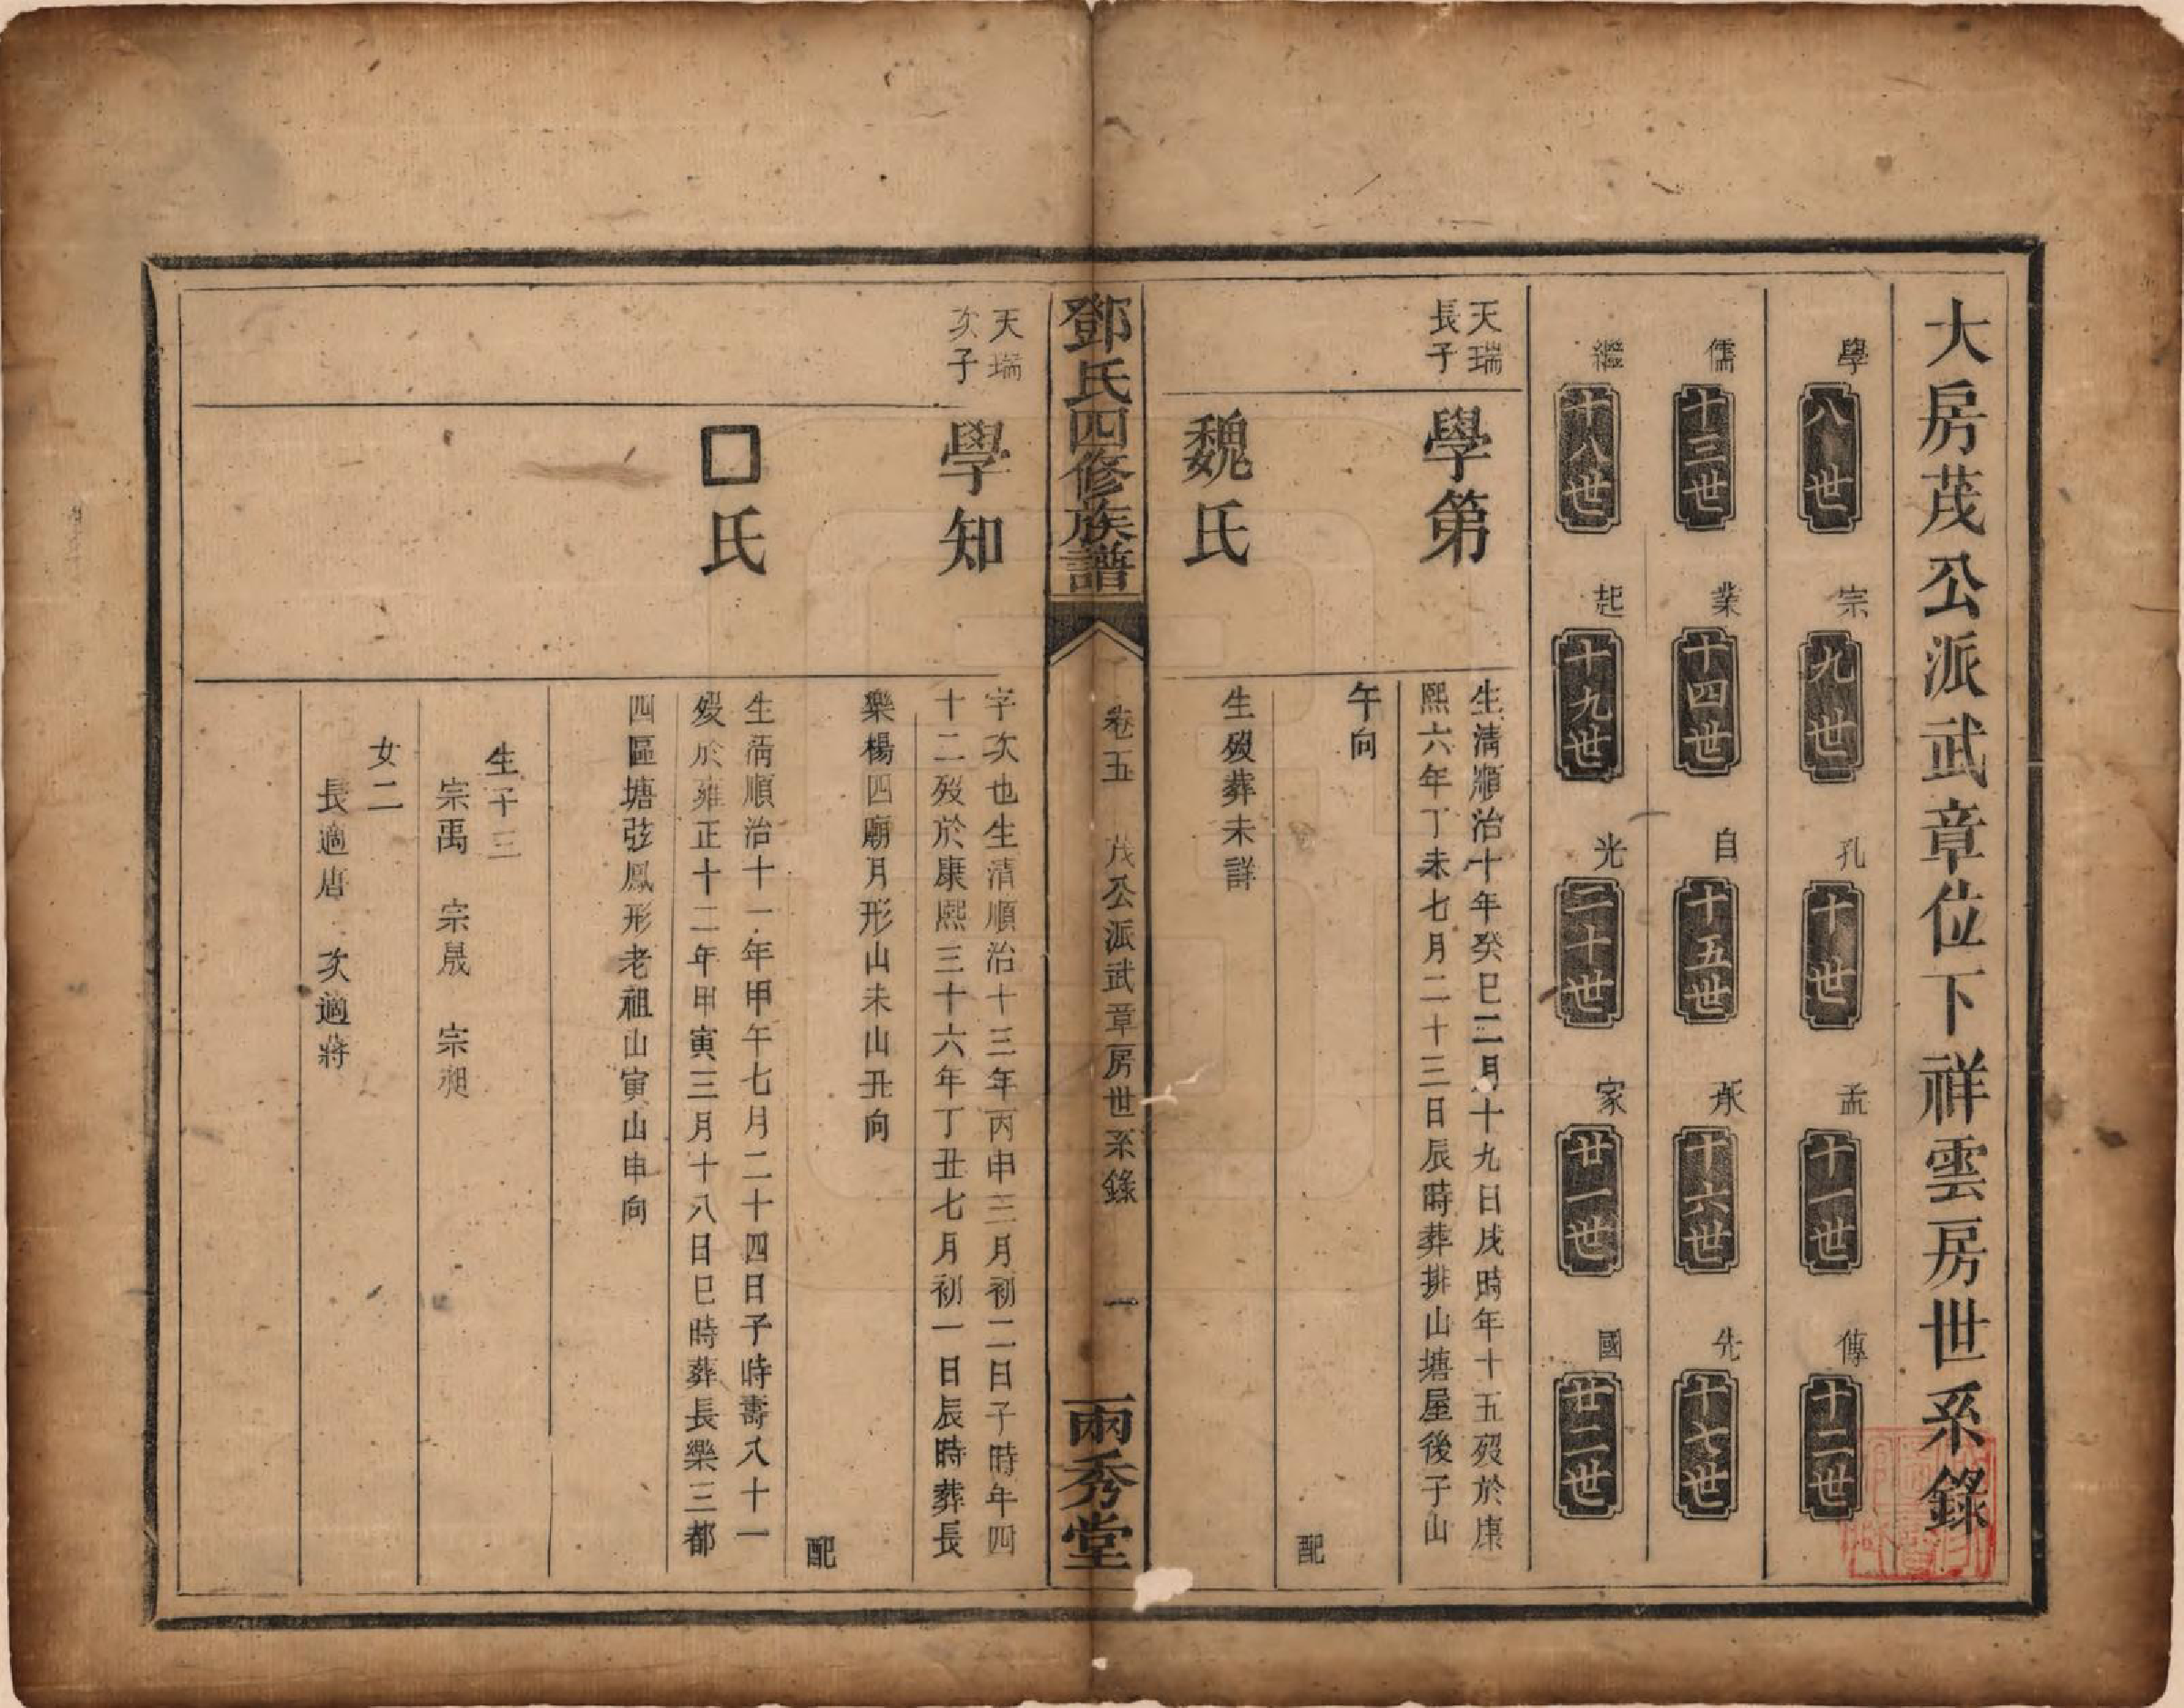 大房茂公派武章位下祥雲房世系錄
學 八世 宗 九世 孔 十世 孟 十一世 傳 十二世
儒 十三世 業 十四世 自 十五世 承 十六世 先 十七世
繼 十八世 起 十九世 光 二十世 家 廿一世 國 廿二世
天瑞
長子
學第
生清順治十年癸巳二月十九日戌時年十五歿於康
熙六年丁未七月二十三日辰時葬排山塘屋後子山
午向
配
魏氏
生歿葬未詳
鄧氏四修族譜
卷五 茂公派武章房世系錄 一
兩秀堂
天瑞
次子
學知
字次也生清順治十三年丙申三月初二日子時年四
十二歿於康熙三十六年丁丑七月初一日辰時葬長
樂楊四廟月形山未山丑向
配
□氏
生清順治十一年甲午七月二十四日子時壽八十一
歿於雍正十二年甲寅三月十八日巳時葬長樂三都
四區塘弦鳳形老祖山寅山申向
生子三
宗禹 宗晟 宗昶
女二
長適唐 次適蔣